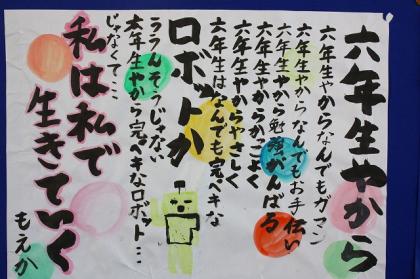 六年生やから
六年生やからなんでもガマン
六年生やからなんでもお手伝い
六年生やから勉強がんばる
六年生やからかっこよく
六年生やからやさしく
六年生はなんでも完ペキな
ロボットか
ううんそうじゃない
六年生やから完ペキなロボット…
じゃなくて…
私は私で
生きていく
もえか